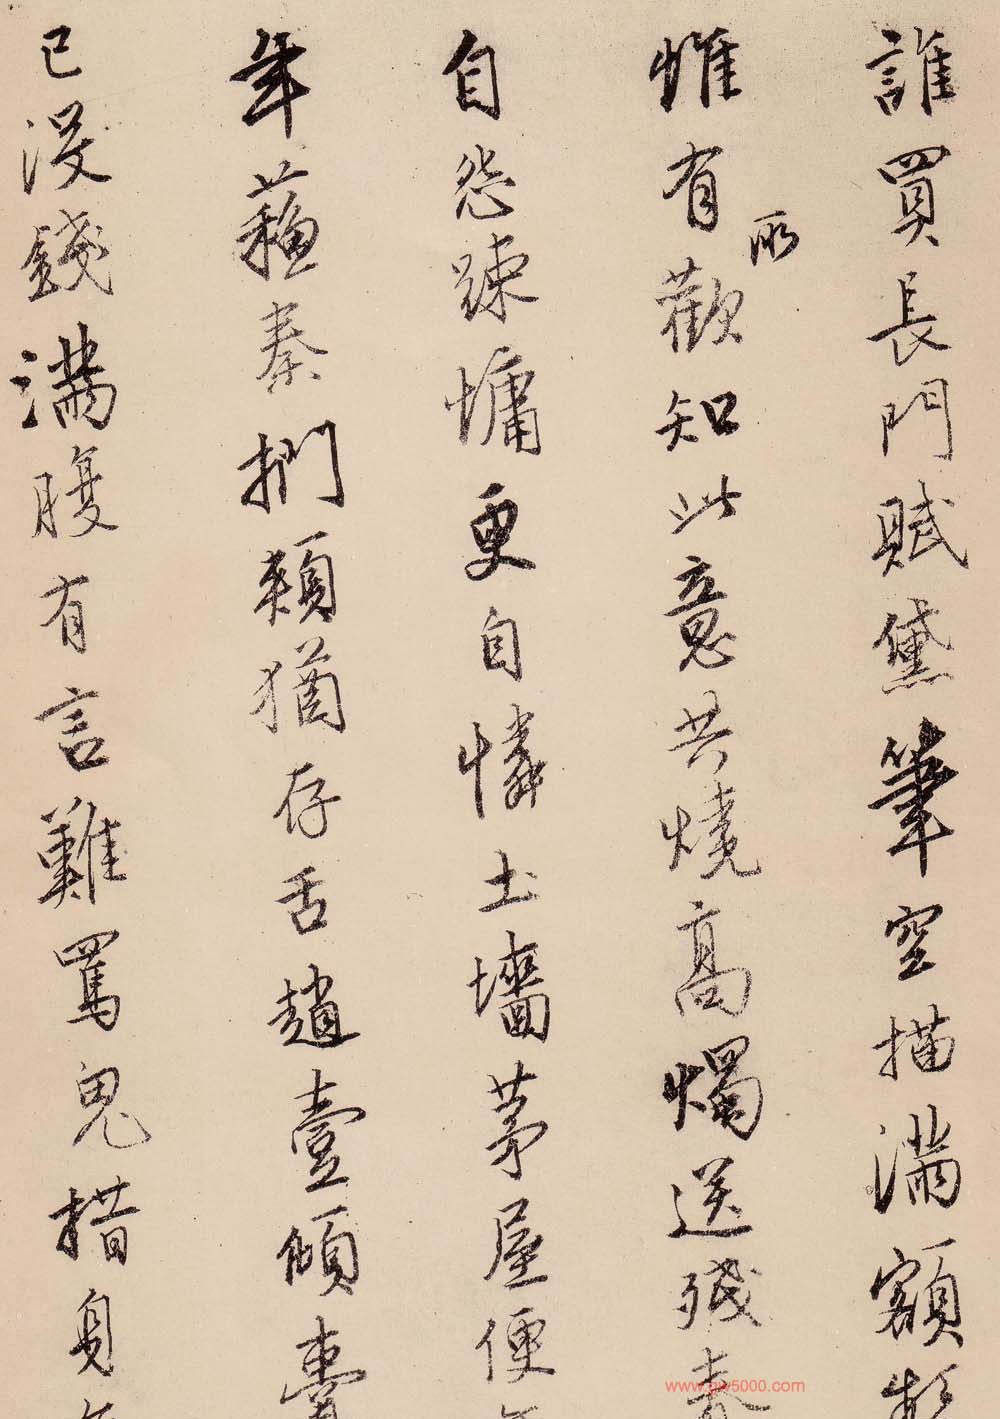 誰買長門賦黛筆空描滿額
惟有所歡知此意共燒高燭送殘春
自怨疎慵更自憐土墻茅屋便
年蘓秦捫頰猶存舌趙壹傾囊
已沒錢滿腹有言難罵鬼措身
www.gw5000.com